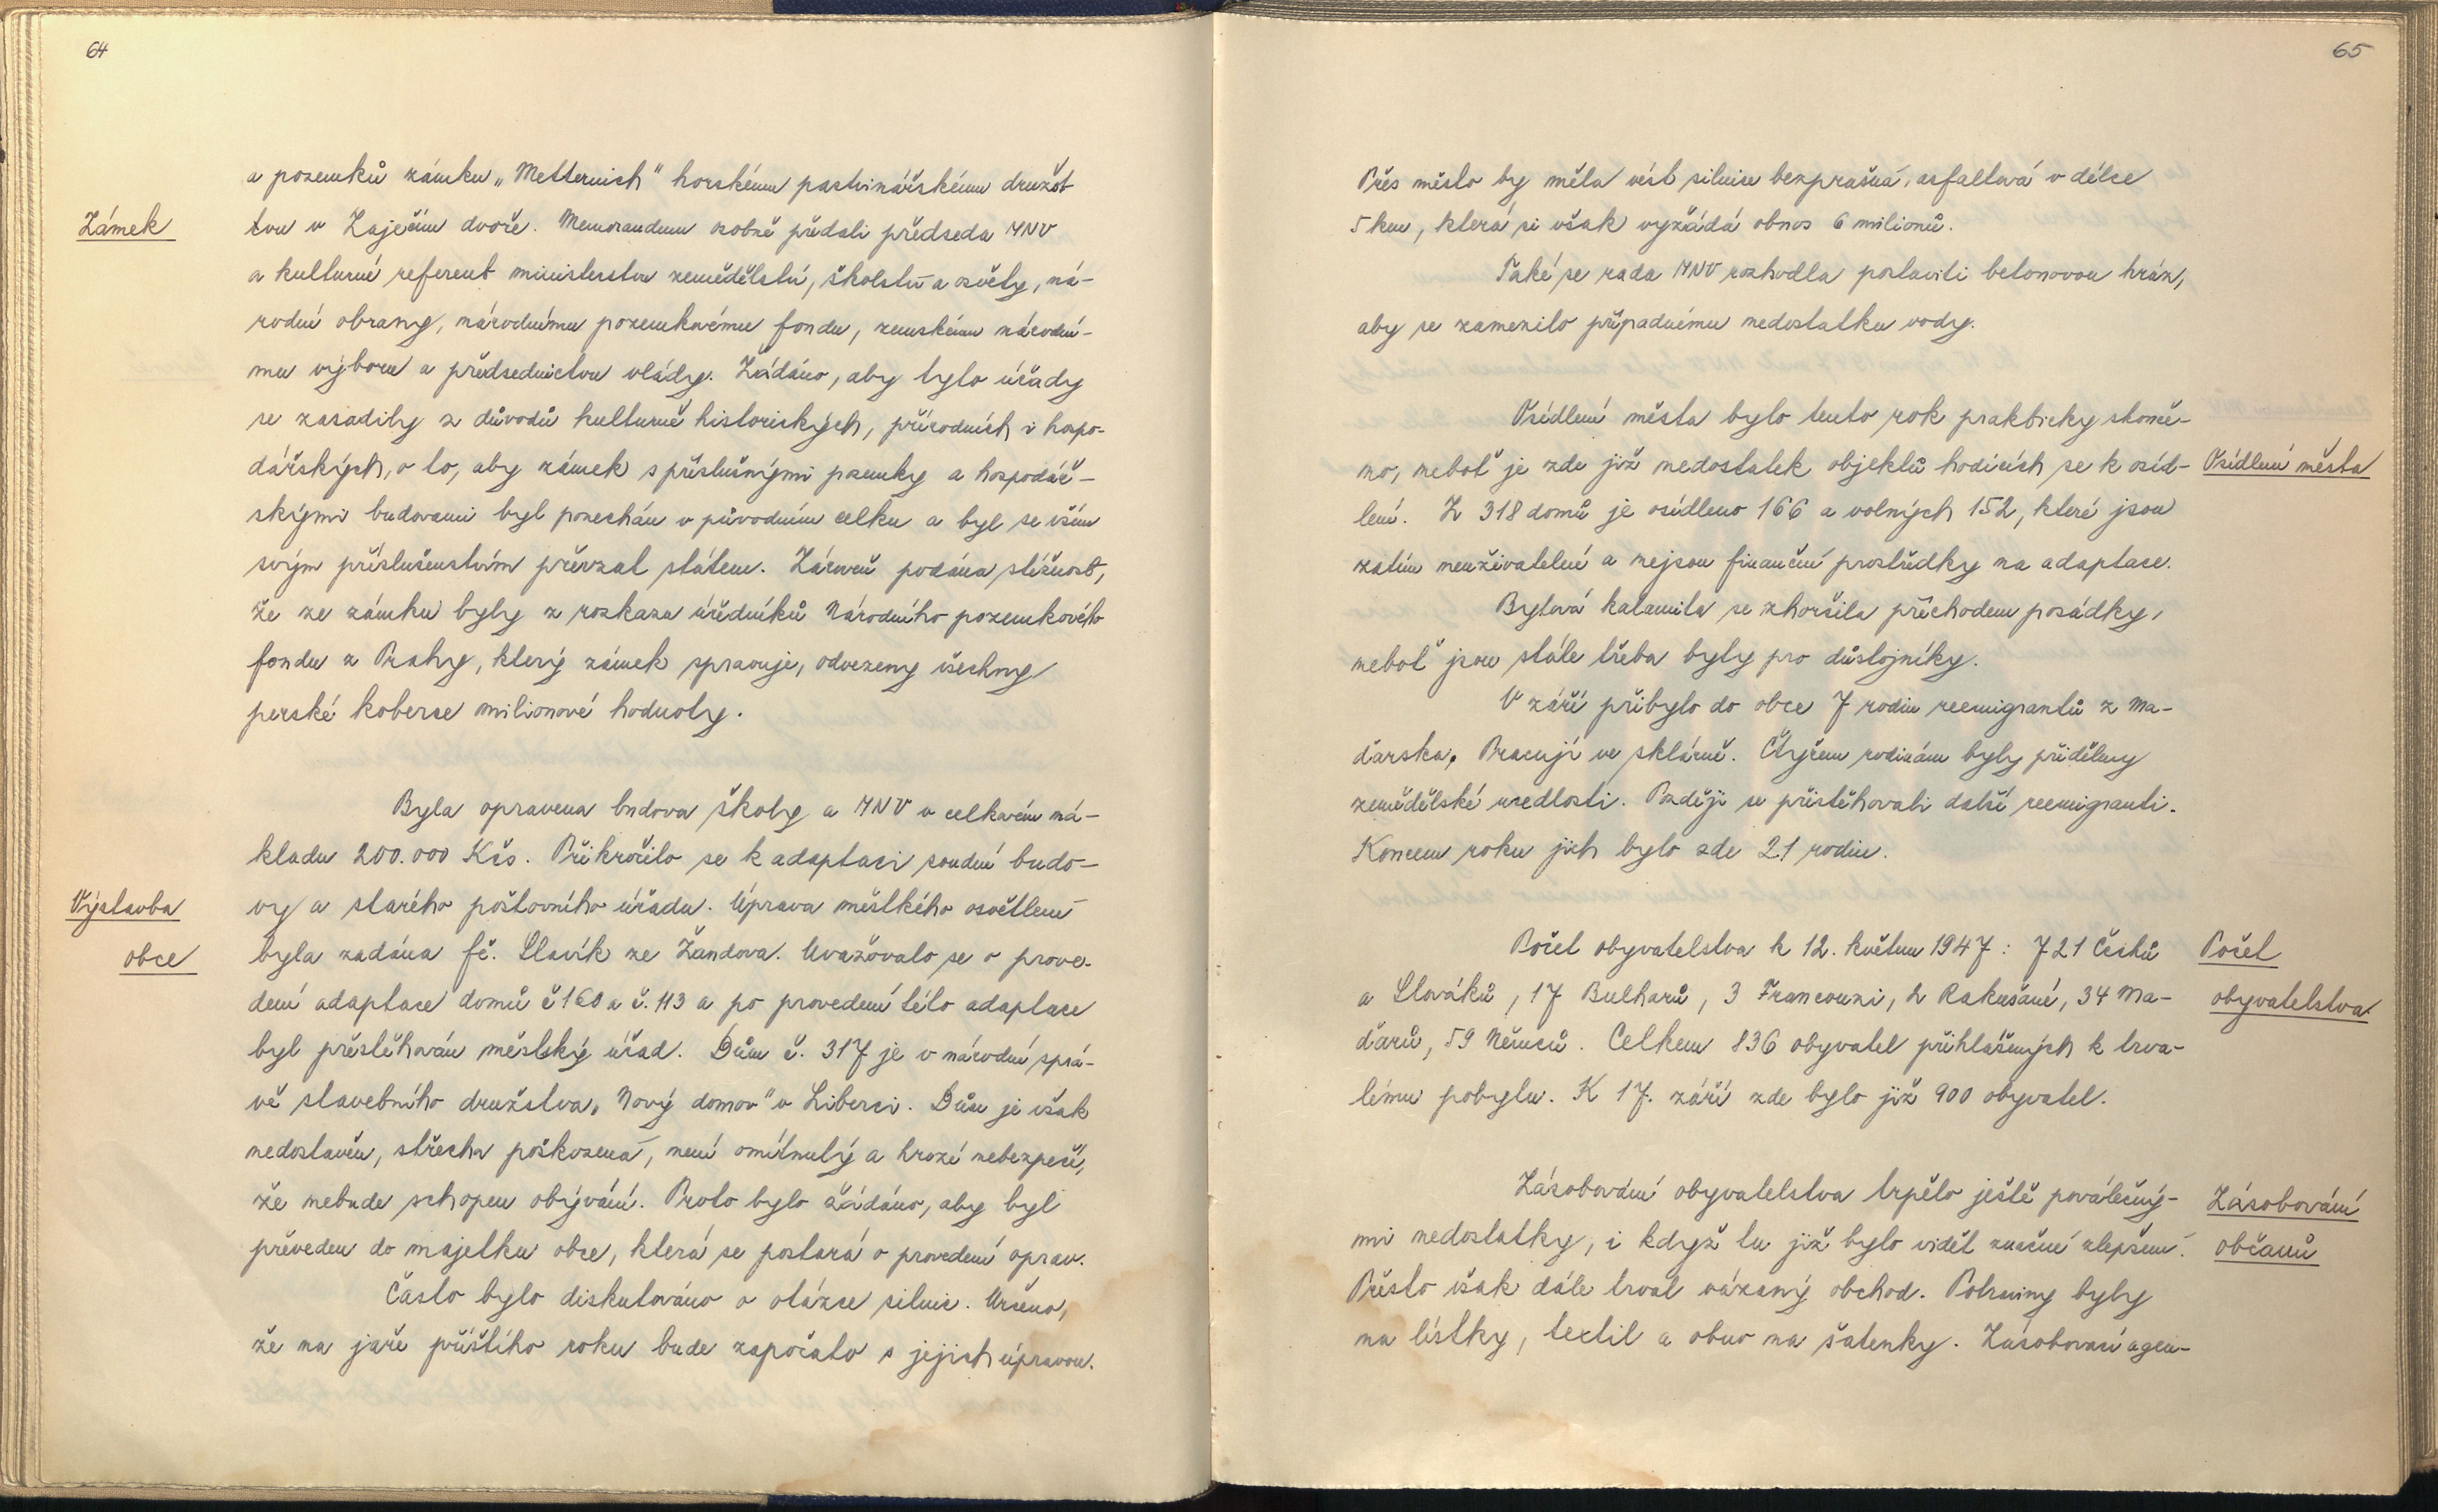 64
a pozemků zámku „Metternich" horskému pastvinářskému družst
Zámek
tvu v Zaječím dvoře. Memorandum osobně předali předseda MNV
a kulturní referent ministerstvu zemědělství, školství a osvěty, ná-
rodní obrany, národnímu pozemkovému fondu, zemskému národní-
mu výboru a předsednictvu vlády. Žádáno, aby tyto úřady
se zasadily z důvodů kulturně historických, přírodních i hospo-
dářských, o to, aby zámek s příslušnými pozemky a hospodář-
skými budovami byl ponechán v původním celku a byl se vším
svým příslušenstvím převzat státem. Zároveň podána stížnost,
že ze zámku byly z rozkazu úředníků Národního pozemkového
fondu z Prahy, který zámek spravuje, odvezeny všechny
perské koberce milionové hodnoty.
Byla opravena budova školy a MNV v celkovém ná-
kladu 200.000 Kčs. Přikročilo se k adaptaci soudní budo-
Výstavba
vy a starého poštovního úřadu. Úprava městkého osvětlení
obce
byla zadána fě. Slavík ze Žandova. Uvažovalo se o prove-
dení adaptace domů č 160 a č. 113 a po provedení této adaptace
byl přestěhován městský úřad. Dům č. 317 je v národní sprá-
vě stavebního družstva „Nový domov" v Liberci. Dům je však
nedostavěn, střecha poškozená, není omítnutý a hrozí nebezpečí,
že nebude schopen obývání. Proto bylo žádáno, aby byl
převeden do majetku obce, která se postará o provedení oprav.
Často bylo diskutováno o otázce silnic. Určeno,
že na jaře příštího roku bude započato s jejich úpravou.
65
Přes město by měla vést silnice bezprašná, asfaltová v délce
5 km, která si však vyžádá obnos 6 milionů.
Také se rada MNV rozhodla postaviti betonovou hráz,
aby se zamezilo případnému nedostatku vody.
Osídlení města bylo tento rok prakticky skonče-
no, neboť je zde již nedostatek objektů hodících se k osíd-
Osídlení města
lení. Z 318 domů je osídleno 166 a volných 152, které jsou
zatím neuživatelné a nejsou finanční prostředky na adaptace.
Bytová kalamita se zhoršila příchodem posádky,
neboť jsou stále třeba byty pro důstojníky.
V září přibylo do obce 7 rodin reemigrantů z Ma-
ďarska. Pracují ve sklárně. Čtyřem rodinám byly přiděleny
zemědělské usedlosti. Později se přistěhovali další reemigranti.
Koncem roku jich bylo zde 21 rodin.
Počet obyvatelstva k 12. květnu 1947: 721 Čechů
Počet
a Slováků, 17 Bulharů, 3 Francouzi, 2 Rakušané, 34 Ma-
obyvatelstva
ďarů, 59 Němců. Celkem 836 obyvatel přihlášených k trva-
lému pobytu. K 17. září zde bylo již 900 obyvatel.
Zásobování obyvatelstva trpělo ještě poválečný-
Zásobování
mi nedostatky, i když tu již bylo vidět značné zlepšení.
občanů
Přesto však dále trval vázaný obchod. Potraviny byly
na lístky, textil a obuv na šatenky. Zásobovací agen-